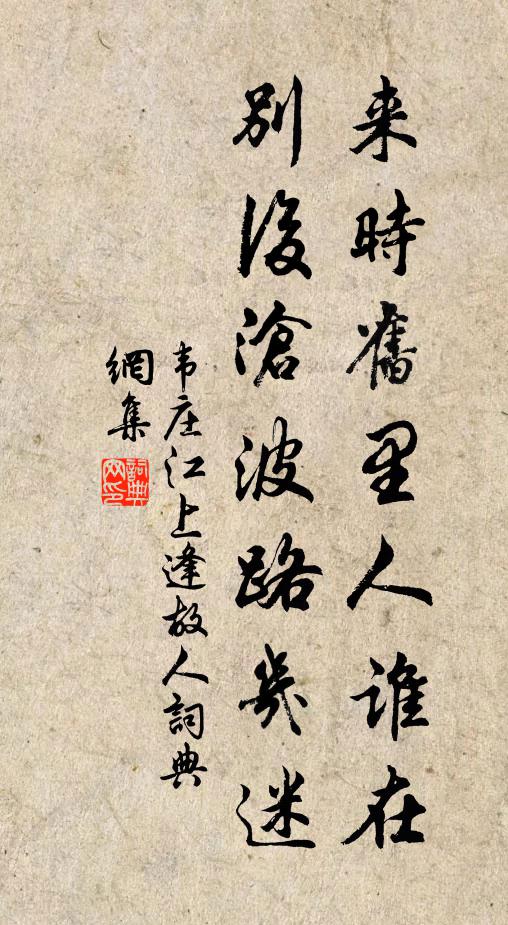 来時舊里人誰在
別後滄波路幾迷
韦庄江上逢故人詞典
網集
詞典網印